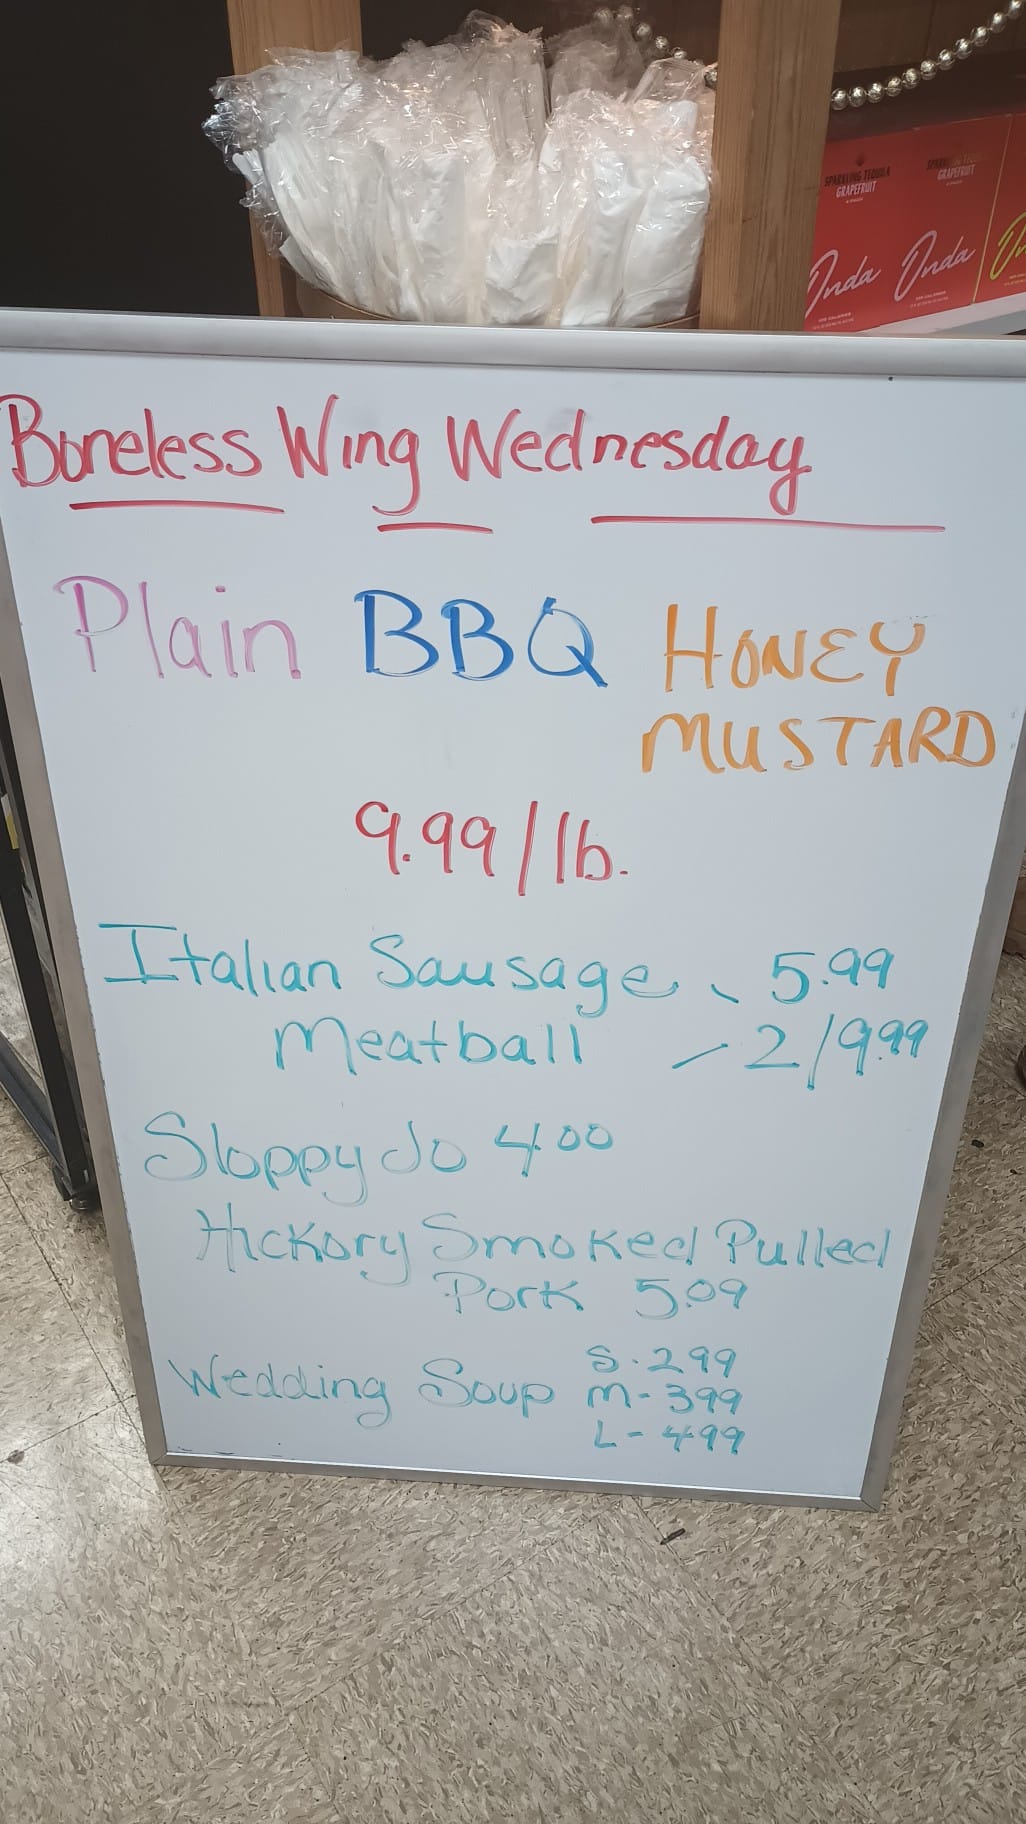 SPARKLING TEQUILA
GRAPEFRUIT
SPARKLING TEQUILA
GRAPEFRUIT
Onda
Onda
Boneless Wing Wednesday
Plain BBQ HONEY
MUSTARD
9.99/lb.
Italian Sausage 5.99
Meatball 2/9.99
Sloppy Jo 4.00
Hickory Smoked Pulled
Pork 5.09
Wedding Soup
S. 299
M - 399
L - 499